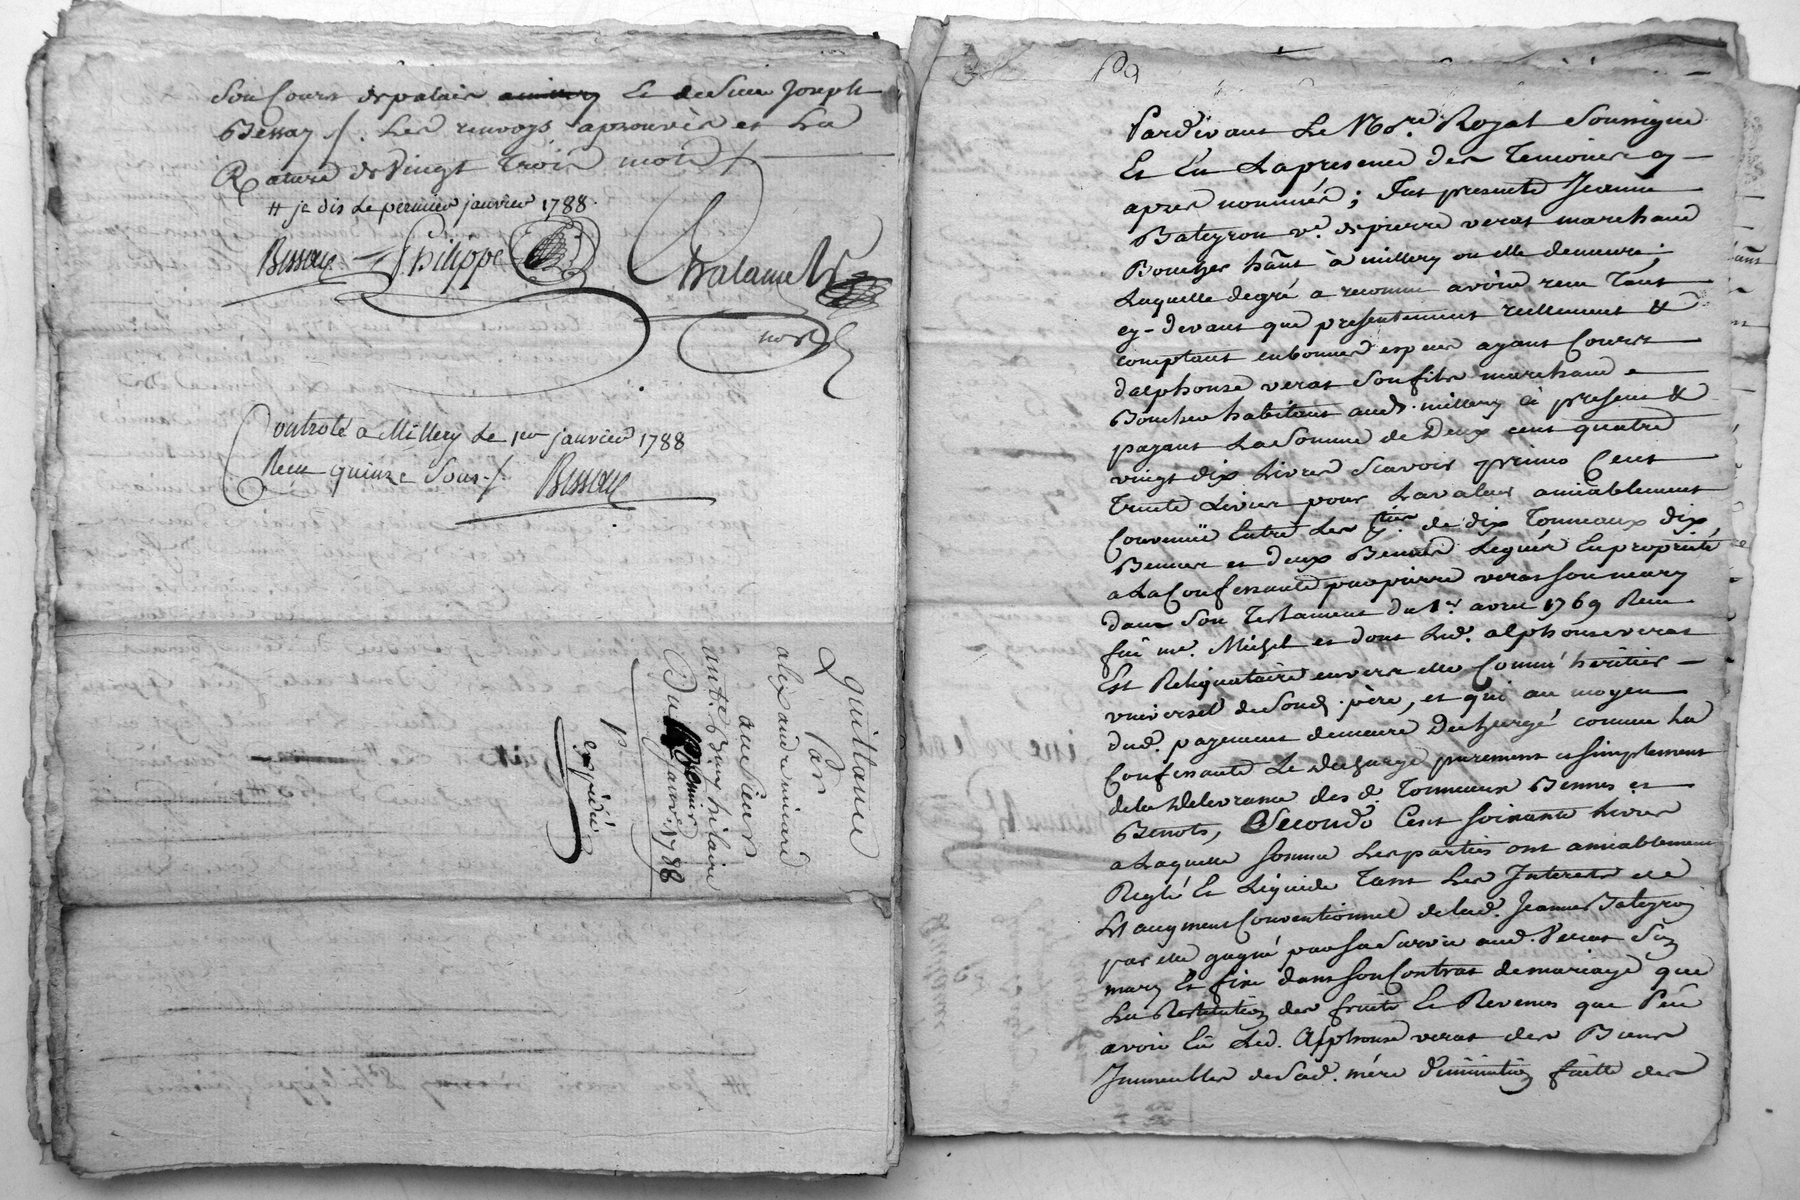 Son Cours de palais et de Sieur Joseph
Bessay /. Les renvoys aprouvés et La
Rature de Vingt trois mots /.
# je dis Le premier janvier 1788.
Bessaie Philippe Chalamel
nore
Controlé a Millery Le 1er janvier 1788
Reçu quinze Sous /. Bessaie
Quittance
Par
alixandre
au Sieur
hilaire
Du Premier janvr. 1788
p.
expédié
Pardevant Le Nore. Royal Soussigné
Et En La presence des Temoins cy
apres nommés ; Fut presente Jeanne
Bateyron ve. de pierre veras marchand
Boucher hânt à millery ou elle demeure ;
Laquelle degré a reconnu avoir reçu Tant
cy-devant que presentement reellement &
comptant en bonnes especes ayant Cours
d'alphonse veras Son fils marchand
Boucher habitant aud. millery ci present &
payant La Somme de Deux cent quatre
vingt dix Livres Scavoir primo Cent
Trente Livres pour La valeur amiablement
Convenüe Entre Les pties. de dix Tonneaux dix
Bennes et deux Legués En proprieté
a La Confessante par pierre veras Son mary
dans Son Testament du 1er avril 1769 Reçu
feu me. Michel et dont Led. alphonse veras
Est Reliquataire envers elle Comme héritier
universel de Sond. père, et qui au moyen
dud. payement demeure Dechargé comme La
Confessante Le decharge purement et Simplement
de La Delivrance desd. Tonneaux Bennes et
Benots, Secondo Cent Soixante Livres
a Laquelle Somme Les parties ont amiablement
Reglé Et Liquidé Tant Les Interets de
L'augment Conventionnel de Lad. Jeanne Bateyron
par elle gagné par Sa Survie aud. Veras Son
mary Et fixé dans Son Contrat de mariage que
La Restitution des fruits Et Revenus que Peut
avoir Eû Led. Alphonse veras des Biens
Immeubles de Sad. mère diminution faitte des